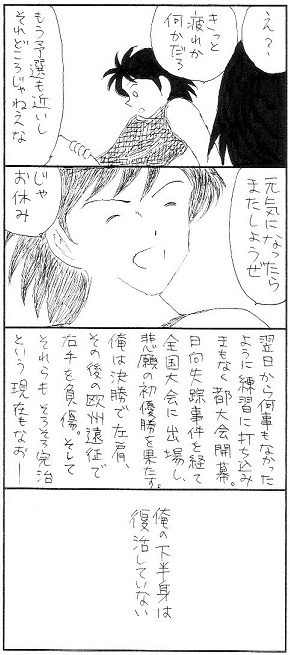 え？
きっと
疲れか
何かだろ
もう予選も近いし
それどころじゃねえな
元気になったら
またしようぜ
じゃ
お休み
翌日から何事もなかった
ように練習に打ち込み
まもなく都大会開幕。
日向失踪事件を経て
全国大会に出場し、
悲願の初優勝を果たす。
俺は決勝で左肩、
その後の欧州遠征で
右手を負傷。そして
それらもそろそろ完治
という現在もなお──
俺の下半身は
復活していない